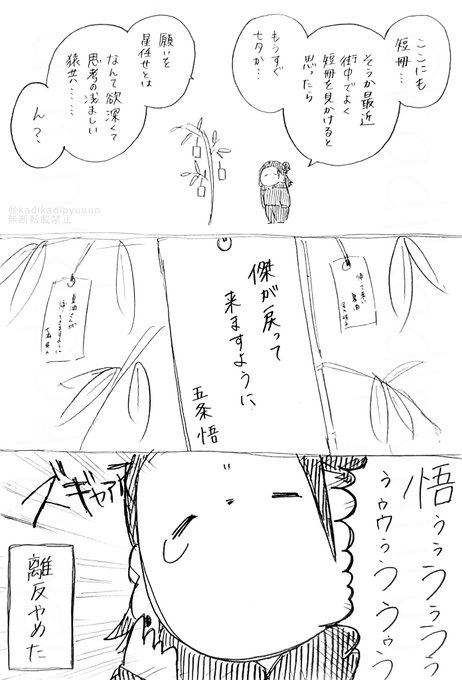 ここにも
短冊…
そうか最近
街中でよく
短冊を見かけると
思ったら
もうすぐ
七夕か…
願いを
星任せとは
なんて欲深くて
思考の浅ましい
猿共……
ん？
@kadikadipyuuun
無断転載禁止
傑が戻って
来ますように
五条悟
悟ぅぅうぅうぅ
ぅゥウぅぅううゥぅ
ズギャアァァ
離反やめた